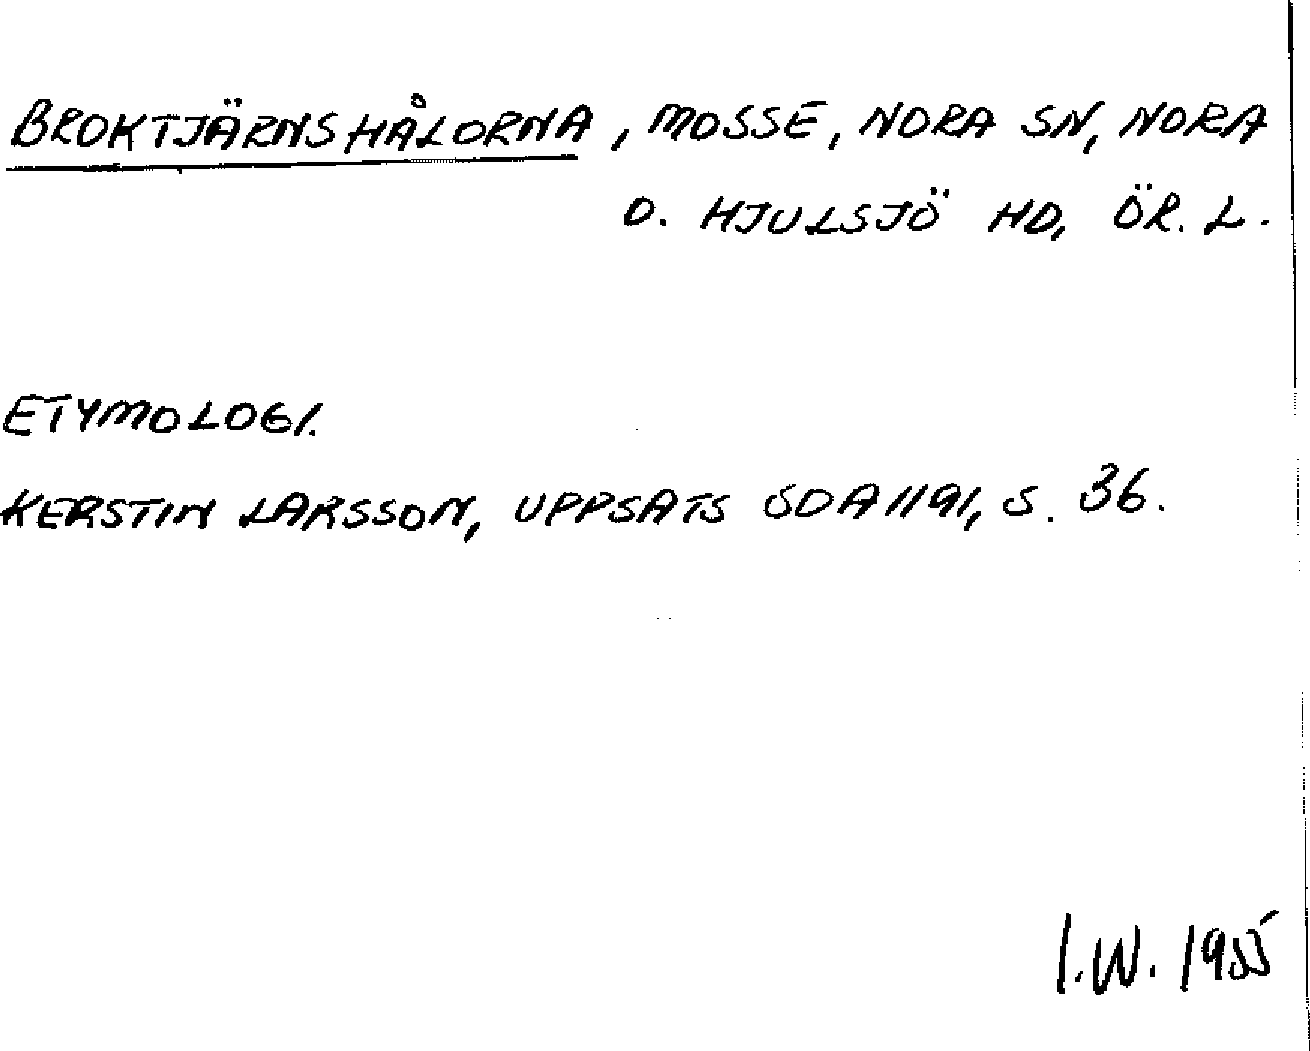 BROKTJÄRNSHÅLORNA, MOSSE, NORA SN, NORA
O. HJULSJÖ HD, ÖR. L.
ETYMOLOGI.
KERSTIN LARSSON, UPPSATS SOA 1191, S. 36.
I.W. 1955